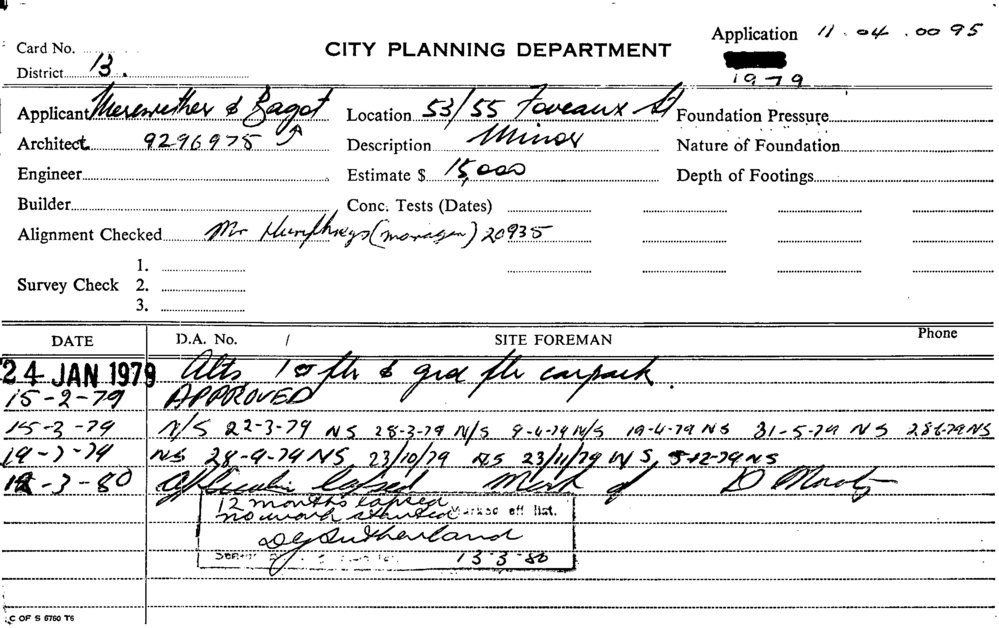 Application 11.04.0095
Card No.
CITY PLANNING DEPARTMENT
District 13.
1979
Applicant Merewether & Bagot Location 53/55 Foveaux St Foundation Pressure
Architect 9296975 Description Minor Nature of Foundation
Engineer Estimate $ 15,000 Depth of Footings
Builder Conc. Tests (Dates)
Alignment Checked Mr Humphreys (manager) 20935
1.
Survey Check 2.
3.
DATE D.A. No. / SITE FOREMAN Phone
24 JAN 1979 Alts 1st flr & grd flr carpark.
15-2-79 APPROVED
15-3-79 N/S 22-3-79 NS 28-3-79 N/S 9-4-79 N/S 19-4-79 NS 31-5-79 NS 28-6-79 NS
19-7-79 NS 28-9-79 NS 23/10/79 NS 23/11/79 NS, 5-12-79 NS
12-3-80 Application lapsed Mark of D
12 months lapsed
no work started Marked off list.
DG Sutherland
13-3-80
C OF S 8760 T5